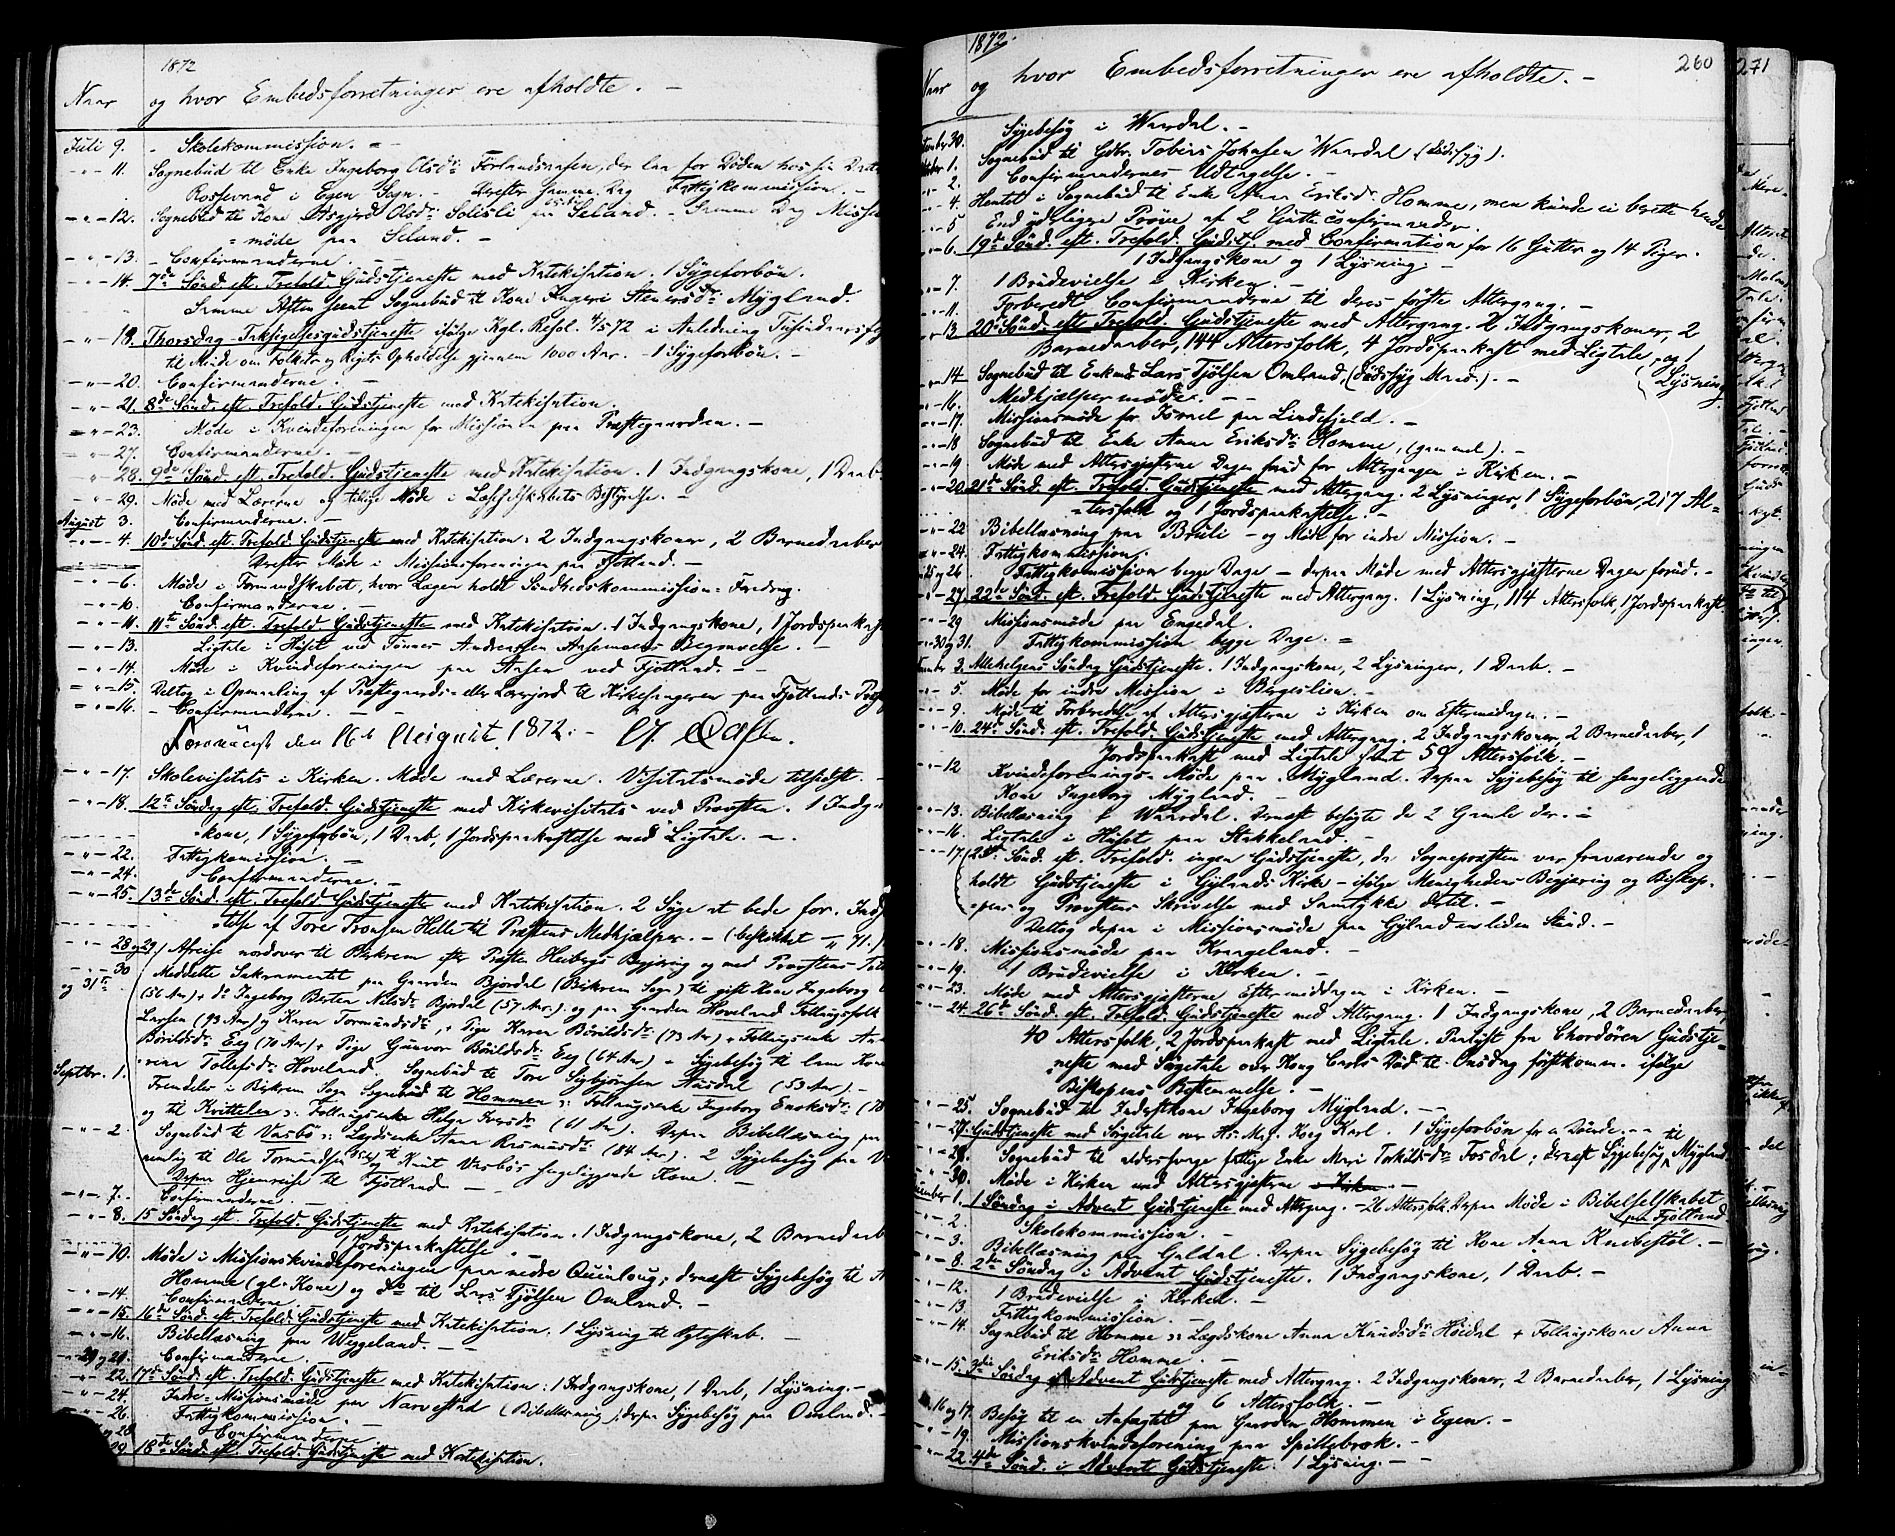 1872
Naar og hvor Embedsforretninger ere afholdte. -
Juli 9. - Skolekommission. -
- " - 11. Sognebud til Enke Ingeborg Olsdr. Förlandsaasen, der laa for Döden hos sin
Rossevand i Egen Sogn. - Derefter samme Dag Fattigkommission. -
- " - 12. Sognebud til Kone Asgjerd Olsdr. Solisli paa Seland. - Samme Dag Missions
= möde paa Seland. -
- " - 13. - Confirmanderne. -
- " - 14. 7de Sönd. eft. Trefold. Gudstjeneste med Katekisation. 1 Sygeforbön.
Samme Aften hent Sognebud til Kone Ingeri Stenersdr. Mygland.
- " - 18. Thorsdag - Taksigelsesgudstjeneste ifölge Kgl. Resol. 4/5 72 i Anledning Tusindaarsfest
til Minde om Folkets og Rigets Opholdelse gjennem 1000 Aar. - 1 Sygeforbön. -
- " - 20. Confirmanderne. -
- " - 21. 8de Sönd. eft. Trefold. Gudstjeneste med Katekisation.
- " - 23. Möde i Kvindeforeningen for Missionen paa Præstegaarden. -
- " - 27. Confirmanderne. -
28. 9de Sönd. eft. Trefold. Gudstjeneste med Katekisation. 1 Indgangskone, 1 Daab
- " - 29. Möde med Lærerne og tillige Möde i Læseselskabets Bestyrelse. -
August 3. Confirmanderne. -
- " - 4. 10de Sönd. eft. Trefold. Gudstjeneste med Katekisation: 2 Indgangskoner, 2 Barnedaaber
Derefter Möde i Missionsforeningen paa Fjotland. -
- " - 6. Möde i Formandskabet, hvor Lægen holdt Sundhedskommissions = Foredrag.
- " - 10. Confirmanderne. -
- " - 11. 11te Sönd. eft. Trefold. Gudstjeneste med Katekisation. 1 Indgangskone, 1 Jordspaakast
- " - 13. Ligtale i Huset ved Tönnes Andreassen Aasemoens Begravelse. -
- " - 14. Möde i Kvindeforeningen paa Aasen ved Fjotland. -
- " - 15. Deltog i Opmaaling af Præstegaards- eller Lærerjord til Kirkesangeren paa Fjotlands
- " - 16. - Confirmanderne. -
den 16de August 1872. -
- " - 17. Skolevisitats i Kirken. Möde med Lærerne. Visitatsmöde tilsidst. -
- " - 18. 12te Söndag eft. Trefold. Gudstjeneste med Kirkevisitats ved Provsten. 1 Indgangs
= kone, 1 Sygeforbön, 1 Daab, 1 Jordspaakastelse med Ligtale. -
- " - 22. Fattigkomission. -
- " - 24. Confirmanderne. -
- " - 25. 13de Sönd. eft. Trefold. Gudstjeneste med Katekisation. 2 Syge at bede for.
telse af Tore Tronsen Helle til Præstens Medhjælper. - (beskikket
- " - 28 og 29 Afreise nordover til Birkrem efter Præsten Heibergs Begjæring og med Provstens
- " - 30 Meddelte Sakramentet paa Gaarden Bjordal (Bikrem Sogn) til gift Kone Ingeborg
og 31te (56 Aar) + do Ingeborg Berten Nilsdr. Bjordal (57 Aar) og paa Gaarden Hoveland Fellingsfolk
Larsen (93 Aar) og Karen Tormundsdr., + Pige Karen Böraldsdr. (73 Aar) + Follaugsenke
Böraldsdr. Eeg (70 Aar) + Pige Gunvor Böraldsdr. Eeg (64 Aar) - Sygebesög til lam Kone
Tollefsdr. Hoveland. Sognebud til Tore Sigbjörnsen Ausdal (53 Aar). -
Septbr. 1. Fremdeles i Birkrem Sogn Sognebud til Hommen: Follaugsenke Ingeborg Enoksdr.
og til Kvittelen: Follaugsenke Helga (61 Aar). Derpaa Bibellæsning paa
- " - 2. Sognebud til Vasbö: Lægdsenke Anna Rasmusdr. (84 Aar). 2 Sygebesög paa
nemlig til Ole Tormundsen og til Knut Vasbös sengeliggende Kone. -
Derpaa Hjemreise til Fjotland. -
- " - 7. Confirmanderne. -
- " - 8. 15 Söndag eft. Trefold. Gudstjeneste med Katekisation. 1 Indgangskone, 2 Barnedaab
1 Jordspaakastelse. -
- " - 10. Möde i Missionskvindeforeningen paa nedre Qvinlaug; dernæst Sygebesög til
Homme (gl. Kone) og do til Lars Tjölsen Omland. -
- " - 14. Confirmanderne. -
- " - 15. 16de Sönd. eft. Trefold. Gudstjeneste med Katekisation. 1 Lysning til Ægteskab. -
- " - 16. Bibellæsning paa Wiggeland. -
- 20 og 21. Confirmanderne. -
- " - 22. 17de Sönd. eft. Trefold. Gudstjeneste med Katekisation: 1 Indgangskone, 1 Daab, 1 Lysning. -
- " - 24. Indre-Missionsmöde paa Narvestad (Bibellæsning); derpaa Sygebesög paa Omland. -
- " - 26. Fattigkommission. -
og 28 Confirmanderne
29 18de Sönd. eft. Trefold. Gudstjeneste med Katekisation.
1872.
260
271
Naar og hvor Embedsforretninger ere afholdte. -
30. Sygebesög i Waardal. -
1. Sognebud til Gdbr. Tobias Johnsen Waardal (dödssyg).
2. Confirmandernes Udtagelse. -
4. Hentet i Sognebud til Enke Anna Eriksdr. Homme, men kunde ei berette hende
5 Endydeligere Pröve af 2 Gutteconfirmander.
6. 19de Sönd. eft. Trefold. Gudstj. med Confirmation for 16 Gutter og 14 Piger.
1 Indgangskone og 1 Lysning. -
7. 1 Brudevielse i Kirken. -
11. Forberedte Confirmanderne til deres förste Altergang. -
13 20de Sönd. eft. Trefold. Gudstjeneste med Altergang. 2 Indgangskoner, 2
Barnedaaber, 144 Altersfolk, 4 Jordspaakast med Ligtale, og 1
Lysning
- 14 Sognebud til Enkmd Lars Tjölsen Omland, (dödssyg Mand.). -
- 16. Medhjælpermöde. -
- 17. Missionsmöde for Israel paa Lindefjeld. -
- 18 Sognebud til Enke Anna Eriksdr. Homme, (gammel). -
- 19 Möde med Altersgjæsterne Dagen forud for Altergangen i Kirken. -
- 20. 21de Sönd. eft. Trefold. Gudstjeneste med Altergang. 2 Lysninger, 1 Sygeforbön, 217 Al-
= tersfolk og 1 Jordspaakastelse. -
- 22 Bibellæsning paa Bruli - og Möde for indre Mission. -
- 24. Fattigkommission.
25 og 26 Fattigkommission begge Dage - derpaa Möde med Altersgjæsterne Dagen forud. -
- 27. 22de Sönd. eft. Trefold. Gudstjeneste med Altergang. 1 Lysning, 114 Altersfolk, 1 Jordspaakast.
- 29 Missionsmöde paa Engedal.
30 og 31. Fattigkommission begge Dage. =
3. Allehelgens Söndag Gudstjeneste. 1 Indgangskone, 2 Lysninger, 1 Daab. -
- 5. Möde for indre Mission i Birgeslien. -
- 9. Möde til Forberedelse af Altersgjæsterne i Kirken om Eftermiddagen. -
- 10. 24de Sönd. eft. Trefold. Gudstjeneste med Altergang. 2 Indgangskoner, 2 Barnedaaber, 1
Jordspaakast med Ligtale samt 59 Altersfolk. -
- 12 Kvindeforenings-Möde paa Mygland. Derpaa Sygebesög til sengeliggende
Kone Ingeborg Mygland. -
- 13. Bibellæsning i Waardal. Dernæst besögte de 2 Gamle der. -
- 16. Ligtale i Huset paa Stakkeland. -
- 17 25de Sönd. eft. Trefold. ingen Gudstjeneste, da Sognepræsten var fraværende og
holdt Gudstjeneste i Gylands Kirke - ifölge Menighedens Begjæring og Biskop-
= pens og Provstens Skrivelse med Samtykke dertil. -
Deltog derpaa i Missionsmöde paa Gyland en liden Stund. -
- 18. Missionsmöde paa Krageland. -
- 19. 1 Brudevielse i Kirken. -
- 23. Möde med Altersgjæsterne Eftermiddagen i Kirken. -
- 24. 26de Sönd. eft. Trefold. Gudstjeneste med Altergang. 1 Indgangskone, 2 Barnedaaber,
40 Altersfolk, 2 Jordspaakast med Ligtale. Paalyst fra Chordören Gudstje=
neste med Sörgetale over Kong Carls Död til Onsdag förstkomm. ifölge
Biskopens Bestemmelse. -
- 25. Sognebud til Inderstkone Ingeborg Mygland. -
- 27. Gudstjeneste med Sörgetale over Hs. Maj. Kong Karl. 1 Sygeforbön for en Döende. -
- 28. Sognebud til alderssvage fattige Enke Mari Torkildsdr. Fosdal; dernæst Sygebesög til Mygland
- 30. Möde i Kirken med Altersgjæsterne i Kirken. -
1. 1 Söndag i Advent Gudstjeneste med Altergang. - 26 Altersfolk. Derpaa Möde i Bibelselskabet
paa Fjotland.
- 2. Skolekommission. -
- 3. Bibellæsning paa Guldal. Derpaa Sygebesög til Kone Anna Knibestöl. -
- 8. 2den Söndag i Advent Gudstjeneste. 1 Indgangskone, 1 Daab. -
- 12. 1 Brudevielse i Kirken. -
- 13. Fattigkommission. -
- 14. Sognebud til Homme: Lægdskone Anna Knudsdr. Höidal + Follaugskone Anna
Eriksdr. Homme. -
- 15. 3die Söndag i Advent Gudstjeneste med Altergang. 2 Indgangskoner, 2 Barnedaaber, 1 Lysning
og 6 Altersfolk. -
16 og 17. Besög til en Anfægtet paa Gaarden Hommen i Egen. -
- 19. Missionskvindeforening paa Spillebrok. -
- 22. 4de Sönd. i Advent Gudstjeneste. 1 Lysning. -